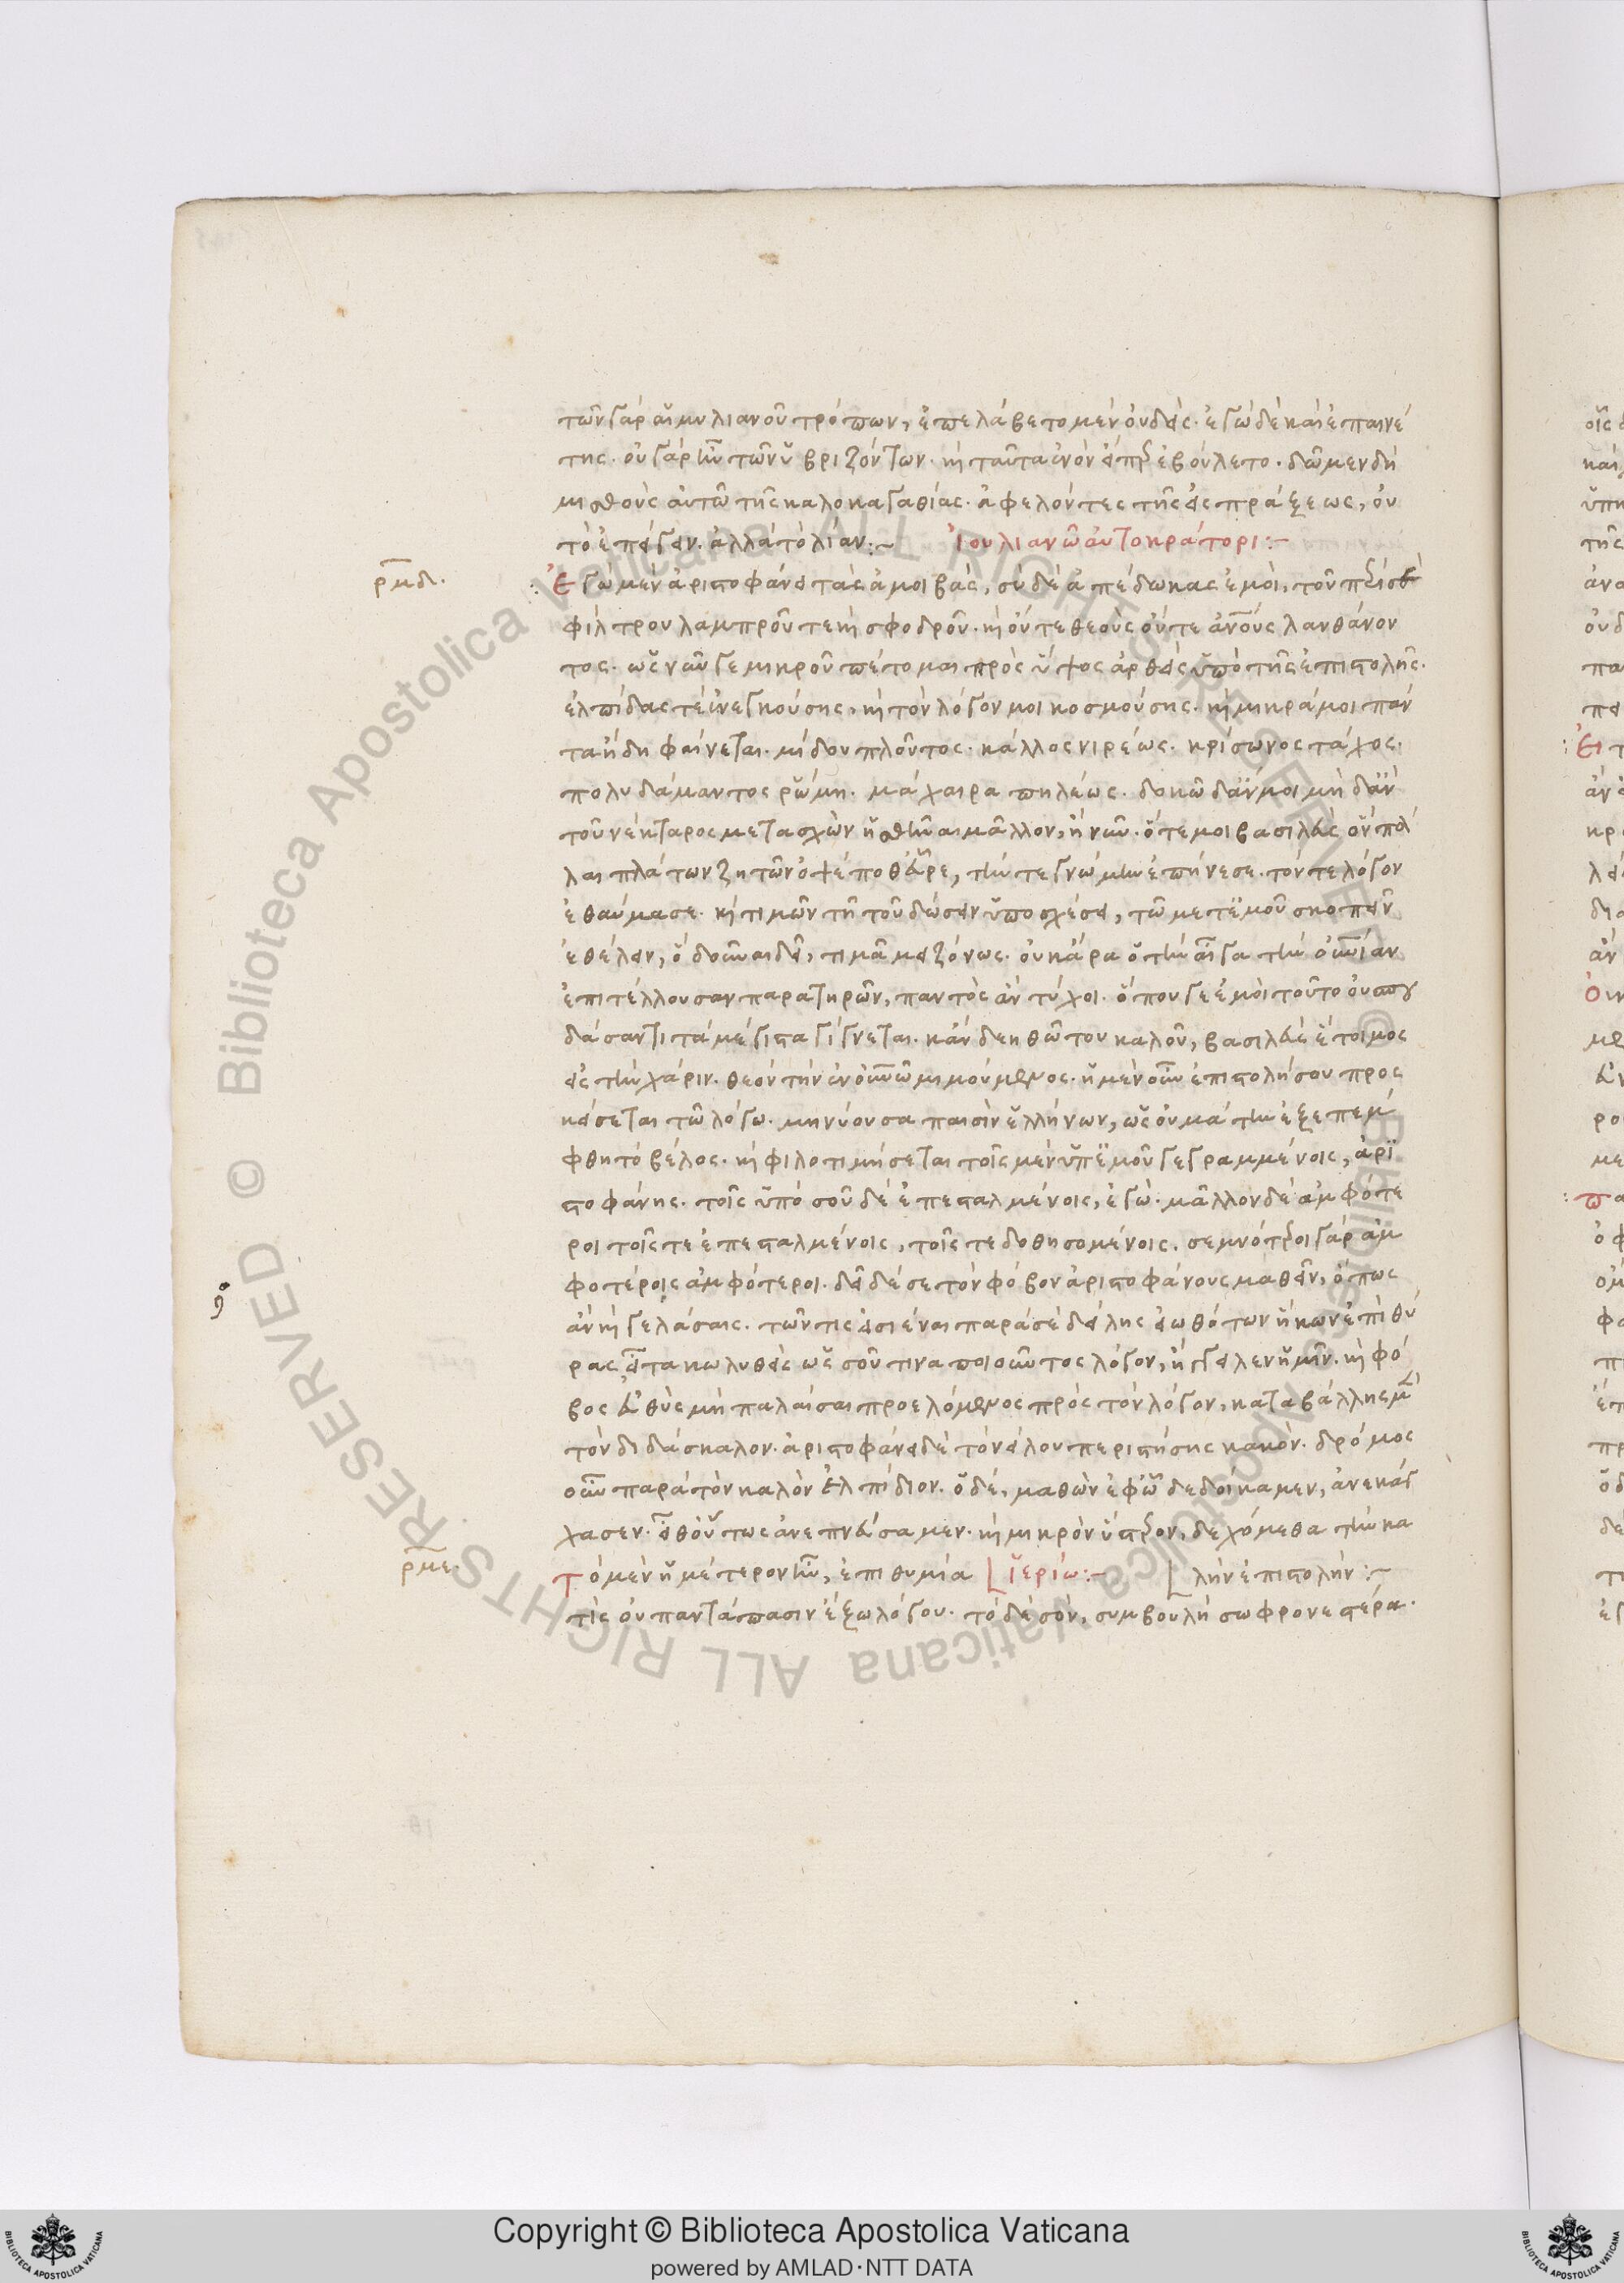 τῶν γὰρ αἰμυλιανοῦ τρόπων, ἐπελάβετο μὲν οὐδείς. ἐγὼ δὲ καὶ ἐπαινέ
της. οὐ γὰρ ἦν τῶν ὑβριζόντων. καὶ ταῦτα ὃν ἐβούλετο. δῶμεν δὴ
μισθοὺς αὐτῷ τῆς καλοκαγαθίας. ἀφελόντες τῆς εἰσπράξεως, οὐ
τὸ ἐπείγειν. ἀλλὰ τὸ λίαν:~ Ἰουλιανῷ αὐτοκράτορι:~
ρμδ.
Ἐγὼ μὲν ἀριστοφάνει τὰς ἀμοιβάς, σὺ δὲ ἀπέδωκας ἐμοὶ, τοῦ περί σε
φίλτρου λαμπροῦ τε καὶ σφοδροῦ. καὶ οὔτε θεοὺς οὔτε ἀνους λανθάνον
τος. ὡς νῦν γε μικροῦ πέτομαι πρὸς ὕψος ἀρθεὶς ὑπὸ τῆς ἐπιστολῆς.
ἐλπίδας τε ἐνεγκούσης, καὶ τὸν λόγον μοι κοσμούσης. καὶ μικρά μοι πάν
τα ἤδη φαίνεται. μίδου πλοῦτος. κάλλος νιρέως. κρίσωνος τάχος.
πολυδάμαντος ῥώμη. μάχαιρα πηλέως. δοκῶ δ' ἄν μοι μηδ' ἂν
τοῦ νέκταρος μετασχὼν ἡσθῆναι μᾶλλον, ἢ νῦν. ὅτε μοι βασιλεὺς ὃν πά
λαι πλάτων ζητῶν ὀψέ ποθ' εὗρε, τήν τε γνώμην ἐπῄνεσε. τόν τε λόγον
ἐθαύμασε. καὶ τιμῶν τῇ τοῦ δώσειν ὑποσχέσει, τῷ μετ' ἐμοῦ σκοπεῖν
ἐθέλειν, ὃ δοῦναι δεῖ, τιμᾷ μειζόνως. οὐκ ἄρα ὁ τὴν αἶγα τὴν οὐρανίαν
ἐπιτέλλουσαν παρατηρῶν, παντὸς ἂν τύχοι. ὅπου γε ἐμοὶ τοῦτο οὐ σπου
δάσαντι τὰ μέγιστα γίγνεται. κἂν δεηθῶ του καλοῦ, βασιλεὺς ἕτοιμος
εἰς τὴν χάριν. θεὸν τὴν ἐν οὐρανῷ μιμούμενος. ἡ μὲν οὖν ἐπιστολή σου προσ
κείσεται τῷ λόγῳ. μηνύουσα παισὶν ἑλλήνων, ὡς οὐ μάτην ἐξεπέμ
φθη τὸ βέλος. καὶ φιλοτιμήσεται τοῖς μὲν ὑπ' ἐμοῦ γεγραμμένοις, ἀρι
στοφάνης. τοῖς ὑπὸ σοῦ δὲ ἐπεσταλμένοις, ἐγώ. μᾶλλον δὲ ἀμφότε
ροι τοῖς τε ἐπεσταλμένοις, τοῖς τε δοθησομένοις. σεμνότεροι γὰρ ἀμ
φοτέροις ἀμφότεροι. δεῖ δέ σε τὸν φόβον ἀριστοφάνους μαθεῖν, ὅπως
ἂν καὶ γελάσαις. τῶν τις εἰσιέναι παρὰ σὲ δείλης εἰωθότων ἥκων ἐπὶ θύ
ρας εἶτα κωλυθεὶς ὡς σοῦ τινα ποιοῦντος λόγον, ἤγγειλεν ἡμῖν. καὶ φό
βος εὐθὺς μὴ παλαῖσαι προελόμενος πρὸς τὸν λόγον, καταβάλλῃς μὲν
τὸν διδάσκαλον. ἀριστοφάνει δὲ τὸν νείλου περιστήσῃς κακόν. δρόμος
οὖν παρὰ τὸν καλὸν ἐλπίδιον. ὁ δέ, μαθὼν ἐφ' ᾧ δεδοίκαμεν, ἀνεκάγ
χασεν. εἶθ' οὕτως ἀνεπνεύσαμεν. καὶ μικρὸν ὕστερον, δεχόμεθα τὴν κα
λὴν ἐπιστολήν:~
ρμε.
Ἱερίῳ:~
Τὸ μὲν ἡμέτερον ἦν, ἐπιθυμία
τίς οὐ παντάπασιν ἔξω λόγου. τὸ δὲ σὸν, συμβουλὴ σωφρονεστέρα.
© Biblioteca Apostolica Vaticana ALL RIGHTS RESERVED
© Biblioteca Apostolica Vaticana ALL RIGHTS RESERVED
Copyright © Biblioteca Apostolica Vaticana
powered by AMLAD·NTT DATA
BIBLIOTECA APOSTOLICA VATICANA
BIBLIOTECA APOSTOLICA VATICANA